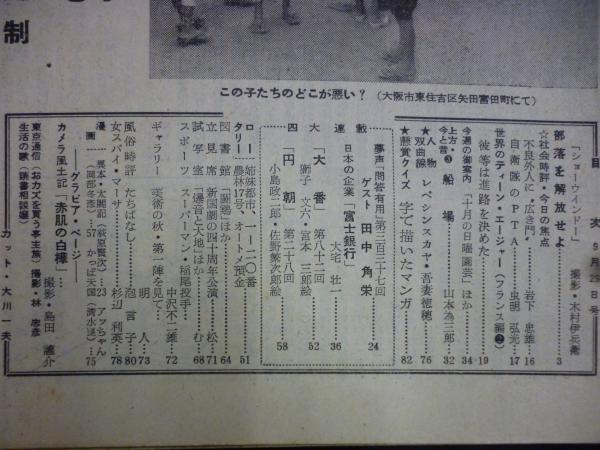 制
この子たちのどこが悪い? (大阪市東住吉区矢田富田町にて)
目次 9月29日号
「ショー・ウインドー」 撮影・木村伊兵衛
部落を解放せよ…3
☆社会時評・今日の焦点
不良外人に“広き門” 岩下忠雄…16
自衛隊のPTA 虫明弘光…17
世界のティーン・エージャー (フランス編❷)
彼等は進路を決めた…19
今週の御案内 「十月の日曜園芸」ほか…34
上方・今と昔❸ 船場 山本為三郎…32
★人物双曲線 レペシンスカヤ・吾妻徳穂…76
★懸賞クイズ 字で描いたマンガ…82
夢声「問答有用」第二百三十七回
ゲスト 田中角栄…24
連載
日本の企業「富士銀行」 大宅壮一…36
「大番」 第八十二回
獅子文六・宮本三郎絵…52
「円朝」 第二十八回
小島政二郎・佐野繁次郎絵…58
ロータリー 姉妹都市、一一〇番
農林17号、オートメ預金…51
図書館 「闘鶏」ほか…64
立見席 新国劇の四十周年公演 松…71
試写室 「爆音と大地」ほか む…68
スポーツ スーパーマン・稲尾投手
中沢不二雄…72
ギャラリー 美術の秋・第一陣を見て…
明人…73
風俗時評 たちばなし 庖言子…80
女スパイ・マーサ 杉辺利英…78
漫画 異本・太閤記(荻原賢次)…23 アッちゃん
(岡部冬彦)…57 かっぱ天国(清水崑)…75
――グラビア・ページ――
カメラ風土記「赤肌の白樺」…
撮影・島田謹介
東京通信(おカズを買う亭主族)撮影・林忠彦
生活の歌(読書相談室)
カット・大川一夫